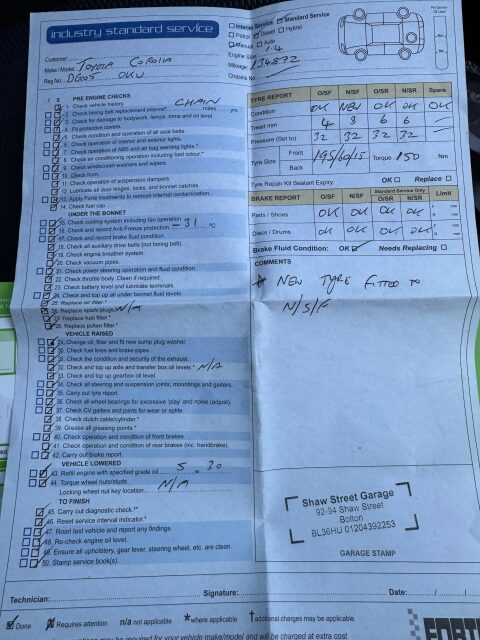 industry standard service
Interim Service Standard Service
Petrol Diesel Hybrid
Manual Auto
Engine Size 1.4
Customer:
Make / Model: TOYOTA COROLLA
Mileage: 134872
Reg No:
Chassis No:
I S PRE ENGINE CHECKS
1. Check vehicle history. CHAIN
2. Check timing belt replacement interval* miles yrs
3. Check for damage to bodywork, lamps, trims and oil level
4. Fit protective covers
5. Check condition and operation of all seat belts
6. Check operation of interior and exterior lights.
7. Check operation of ABS and air bag warning lights.*
8. Check air conditioning operation including bad odour.*
9. Check windscreen washers and wipers.
10. Check horn.
11. Check operation of suspension dampers.
12. Lubricate all door hinges, locks, and bonnet catches.
13. Apply Forté treatments to remove internal contamination.
14. Check fuel cap.
UNDER THE BONNET
15. Check cooling system including fan operation
16. Check and record Anti-Freeze protection -31 °C
17. Check and record brake fluid condition.
18. Check all auxiliary drive belts (not timing belt)
19. Check engine breather system.
20. Check vacuum pipes.
21. Check power steering operation and fluid condition.
22. Check throttle body. Clean if required.
23. Check battery level and lubricate terminals.
24. Check and top up all under bonnet fluid levels.
25. Replace air filter.*
26. Replace spark plugs. N/A
27. Replace fuel filter.*
28. Replace pollen filter.*
VEHICLE RAISED
29. Change oil, filter and fit new sump plug washer.
30. Check fuel lines and brake pipes.
31. Check the condition and security of the exhaust.
32. Check and top up axle and transfer box oil levels.* N/A
33. Check and top up gearbox oil level
34. Check all steering and suspension joints, mountings and gaiters.
35. Carry out tyre report.
36. Check all wheel bearings for excessive 'play' and noise (adjust).
37. Check CV gaiters and joints for wear or splits.
38. Check clutch cable/cylinder.*
39. Grease all greasing points.*
40. Check operation and condition of front brakes.
41. Check operation and condition of rear brakes (inc. handbrake)
42. Carry out brake report.
VEHICLE LOWERED
43. Refill engine with specified grade oil 5 w 30
44. Torque wheel nuts/studs.
Locking wheel nut key location. N/A
TO FINISH
45. Carry out diagnostic check.†*
46. Reset service interval indicator.*
47. Road test vehicle and report any findings.
48. Re-check engine oil level.
49. Ensure all upholstery, gear lever, steering wheel, etc. are clean.
50. Stamp service book(s).
Pre Service Oil Level
Max
Min
TYRE REPORT O/SF N/SF O/SR N/SR Spare
Condition OK NEW OK OK OK
Tread mm 4 8 6 6 —
Pressure (Set to) 32 32 32 32 —
Tyre Size Front 195/60/15 Torque 150 Nm
Back
Tyre Repair Kit Sealant Expiry: OK Replace
BRAKE REPORT O/SF N/SF Standard Service Only O/SR N/SR Limit
Pads / Shoes OK OK OK OK mm
Discs / Drums OK OK OK OK mm
Brake Fluid Condition: OK Needs Replacing
COMMENTS
* NEW TYRE FITTED TO
N/S/F
Shaw Street Garage
92-94 Shaw Street
Bolton
BL36HU 01204392253
GARAGE STAMP
Technician: Signature: Date: / /
Done Requires attention n/a not applicable * where applicable † additional charges may be applicable
may be required for your vehicle make/model and will be charged at extra cost